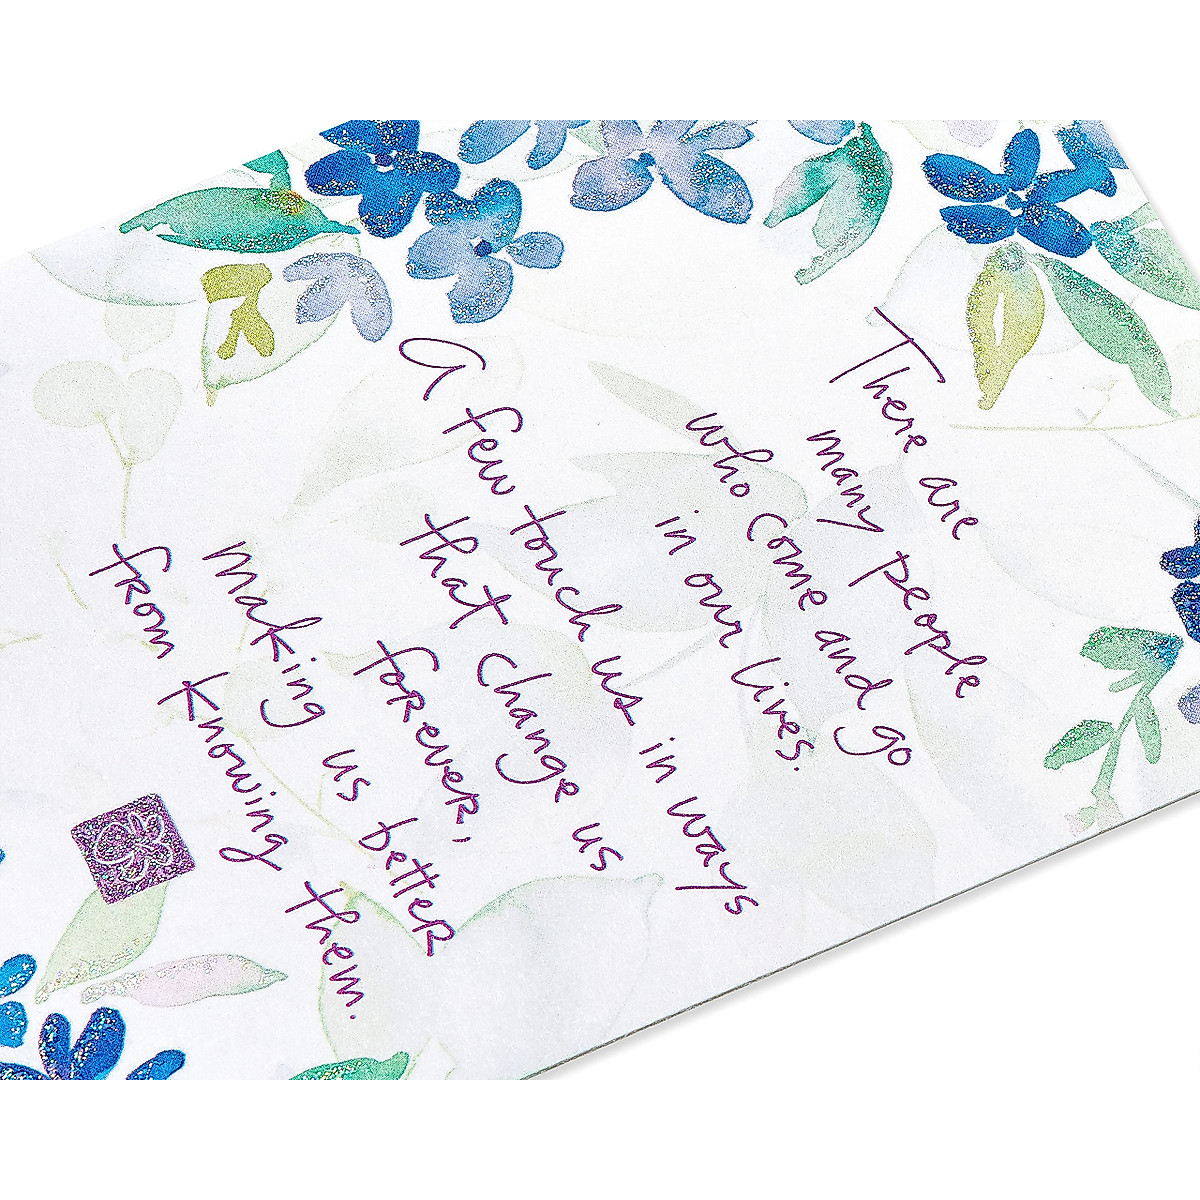 There are
many people
who come and go
in our lives.
A few touch us in ways
that change us
forever,
making us better
from knowing them.